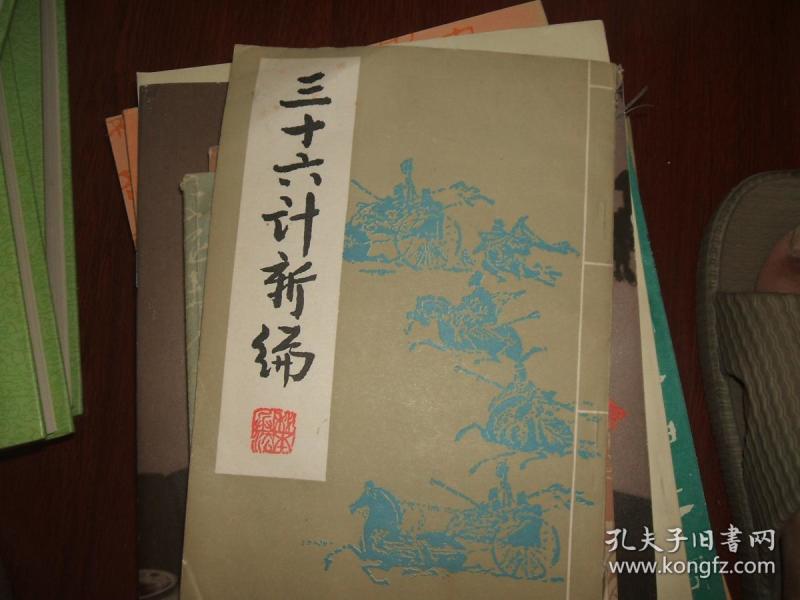 三十六计新编
孔夫子旧書网
www.kongfz.com